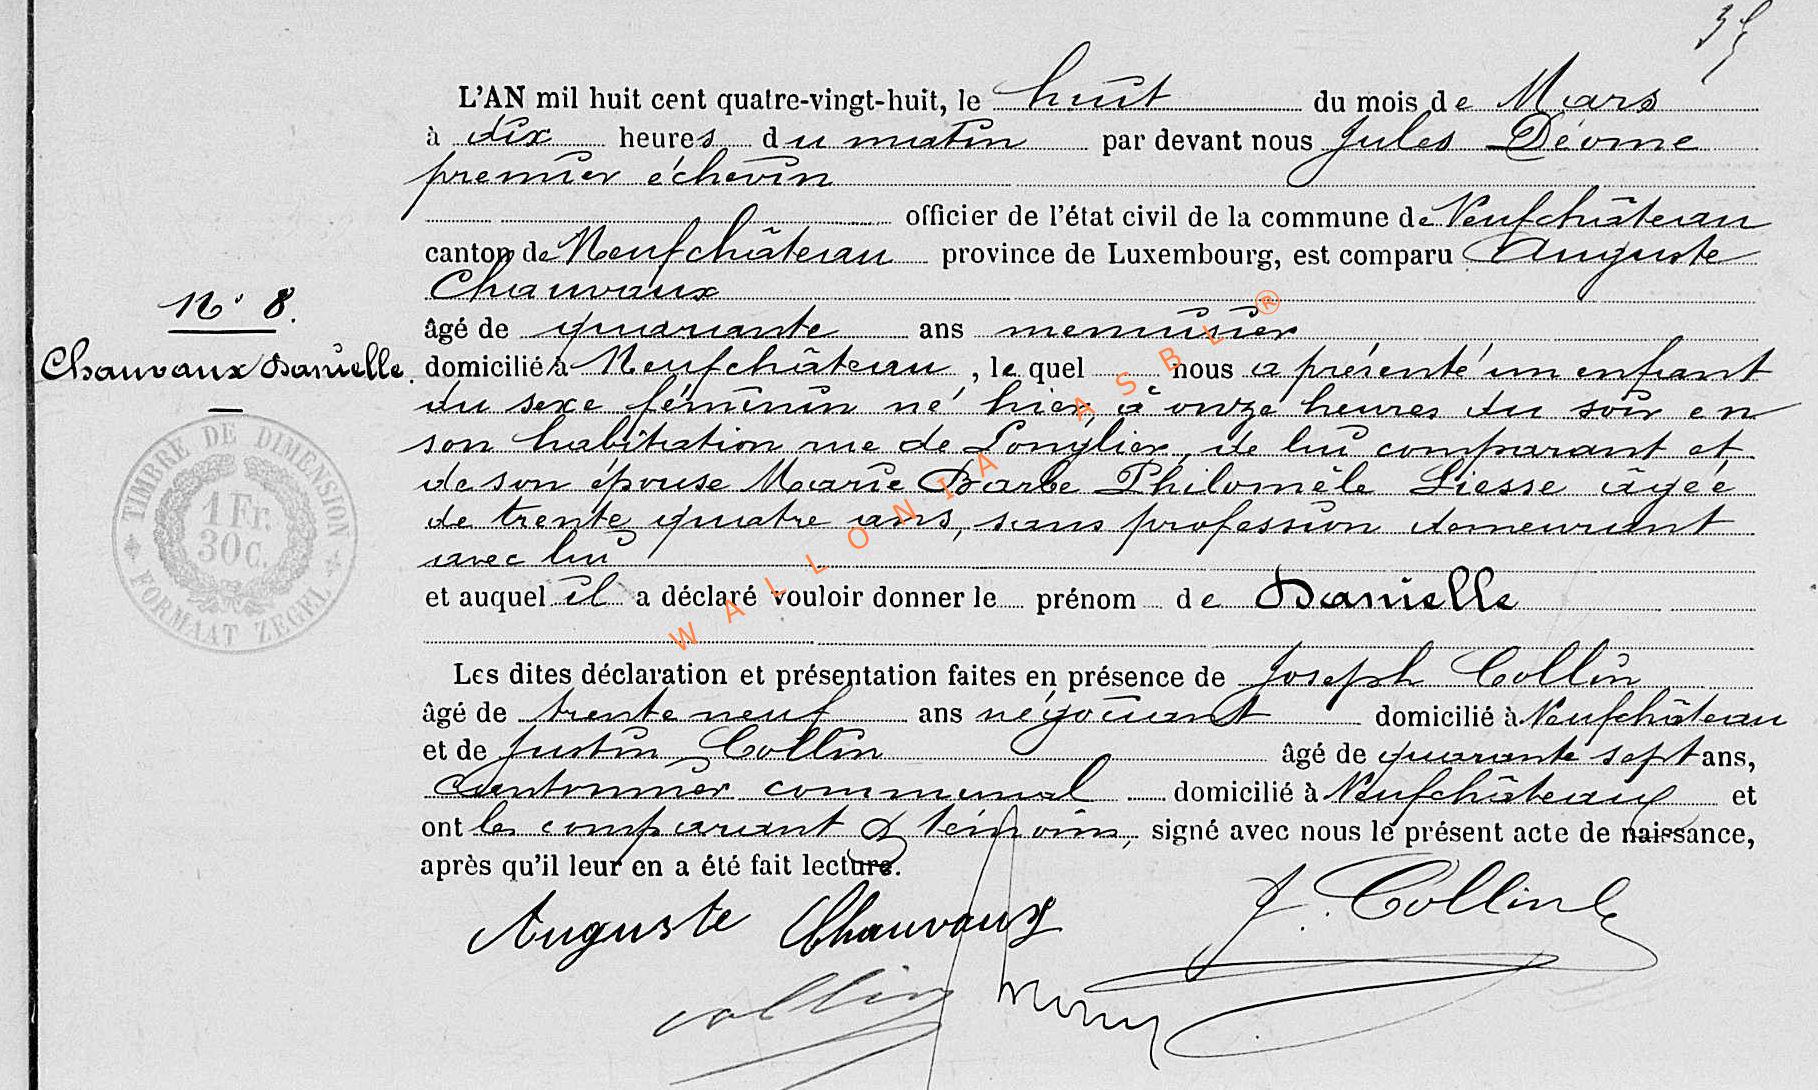 35
L'AN mil huit cent quatre-vingt-huit, le huit du mois de Mars
à dix heures du matin par devant nous Jules Déome
premier échevin
officier de l'état civil de la commune de Neufchâteau
canton de Neufchâteau province de Luxembourg, est comparu Auguste
Chauvaux
N° 8.
âgé de quarante ans menuisier
Chauvaux Danielle.
domicilié à Neufchâteau, le quel nous a présenté un enfant
du sexe féminin né hier, à onze heures du soir en
son habitation rue de Longlier, de lui comparant et
de son épouse Marie Barbe Philomèle Liesse âgée
de trente quatre ans, sans profession demeurant
avec lui
et auquel il a déclaré vouloir donner le prénom de Danielle
Les dites déclaration et présentation faites en présence de Joseph Collin
âgé de trente neuf ans négociant domicilié à Neufchâteau
et de Justin Collin âgé de quarante sept ans,
Cantonnier communal domicilié à Neufchâteau et
ont les comparant & témoins, signé avec nous le présent acte de naissance,
après qu'il leur en a été fait lecture.
Auguste Chauvaux
J. Collin
Collin
TIMBRE DE DIMENSION
1 Fr.
30 C.
FORMAAT ZEGEL
WALLONIA ASBL ®